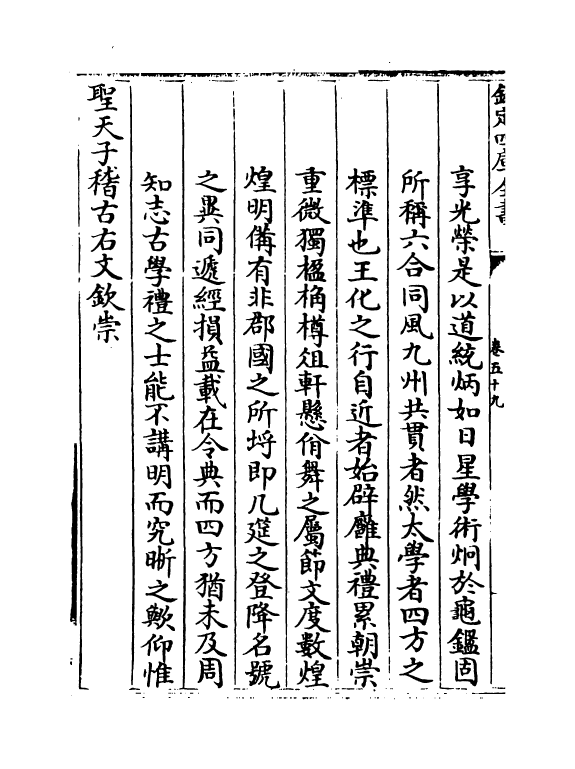 欽定四庫全書
卷五十九
享光榮是以道統炳如日星學術炯於龜鑑固
所稱六合同風九州共貫者然太學者四方之
標準也王化之行自近者始辟廱典禮累朝崇
重微獨楹桷樽俎軒懸佾舞之屬節文度數煌
煌明備有非郡國之所埒即几筵之登降名號
之異同遞經損益載在令典而四方猶未及周
知志古學禮之士能不講明而究晰之歟仰惟
聖天子稽古右文欽崇